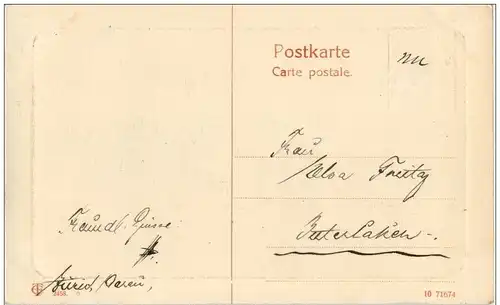 Postkarte
Carte postale.
Frau
Elsa Freitz
Interlaken.
Freundl. Grüsse
2458.
10 71674